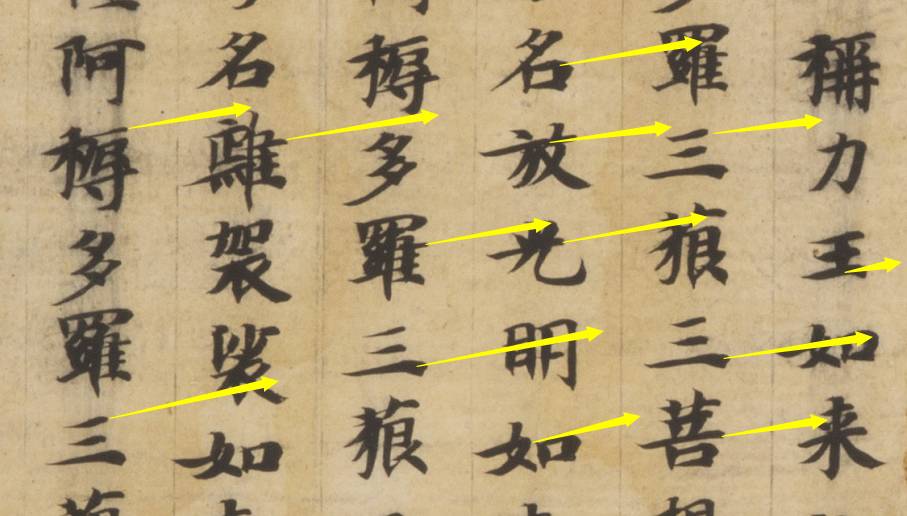 稱力王如来
羅三藐三菩
名放光明如
耨多羅三藐
名離袈裟如
阿耨多羅三